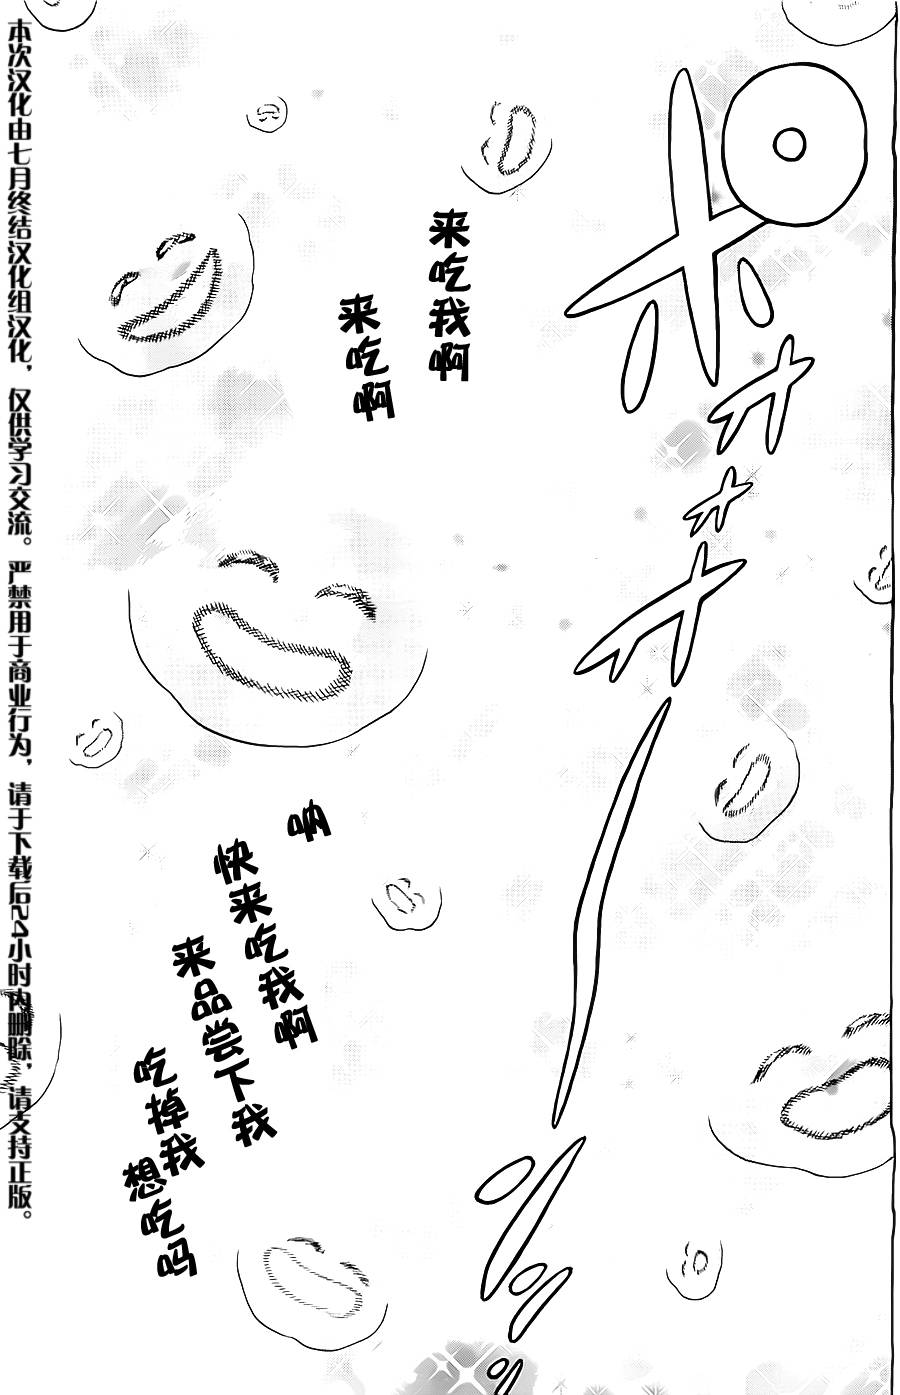 来吃我啊
来吃啊
呐
快来吃我啊
来品尝下我
吃掉我
想吃吗
本次汉化由七月终结汉化组汉化，仅供学习交流。严禁用于商业行为，请于下载后24小时内删除，请支持正版。